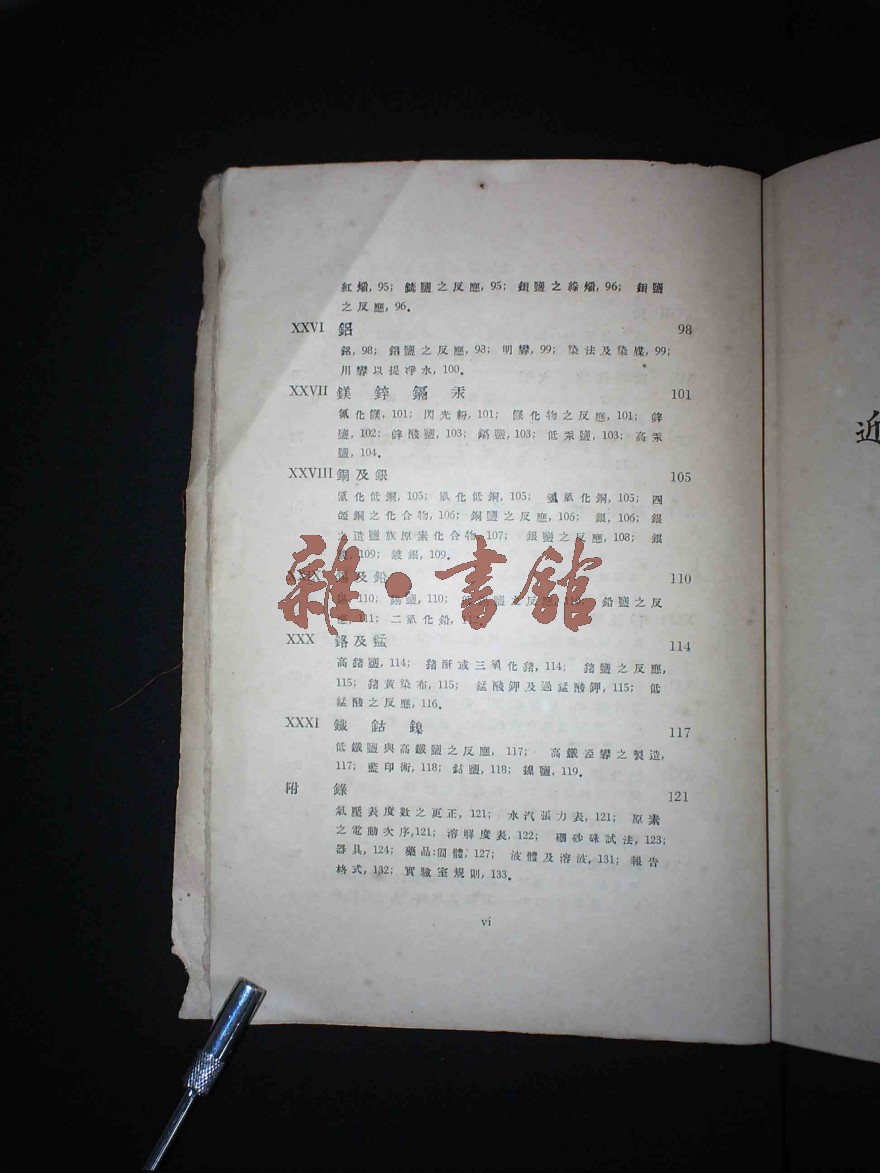 紅熖, 95; 鍶鹽之反應, 95; 鋇鹽之綠熖, 96; 鋇鹽
之反應, 96。
XXVI 鋁 98
鋁, 98; 鋁鹽之反應, 98; 明礬, 99; 染法及染媒, 99;
用礬以提净水, 100。
XXVII 鎂 鋅 鎘 汞 101
氮化鎂, 101; 閃光粉, 101; 鎂化物之反應, 101; 鋅
鹽, 102; 鋅酸鹽, 103; 鎘鹽, 103; 低汞鹽, 103; 高汞
鹽, 104。
XXVIII 銅及銀 105
氯化低銅, 105; 氧化低銅, 105; 氫氧化銅, 105; 四
銅之化合物, 106; 銅鹽之反應, 106; 銀, 106; 銀
之造鹽族原素化合物, 107; 銀鹽之反應, 108; 銀
109; 鍍銀, 109。
XXIX 錫及鉛 110
錫, 110; 錫鹽, 110; 鹽之反應, 110; 鉛鹽之反
應, 111; 二氧化鉛,
XXX 鉻及錳 114
高鉻鹽, 114; 鉻酐或三氧化鉻, 114; 鉻鹽之反應,
115; 鉻黃染布, 115; 錳酸鉀及過錳酸鉀, 115; 低
錳酸之反應, 116。
XXXI 鐵 鈷 鎳 117
低鐵鹽與高鐵鹽之反應, 117; 高鐵礬之製造,
117; 藍印術, 118; 鈷鹽, 118; 鎳鹽, 119。
附 錄 121
氣壓表度數之更正, 121; 水汽張力表, 121; 原素
之電動次序, 121; 溶解度表, 122; 硼砂硃試法, 123;
器具, 124; 藥品:固體, 127; 液體及溶液, 131; 報告
格式, 132; 實驗室規則, 133。
vi
近
雜·書館